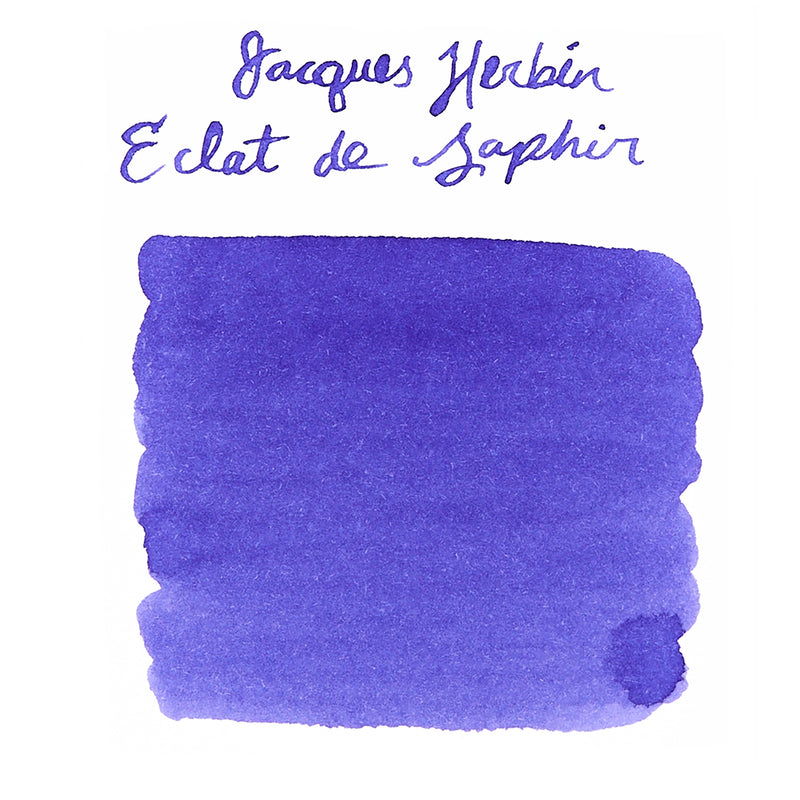 Jacques Herbin
Eclat de Saphir